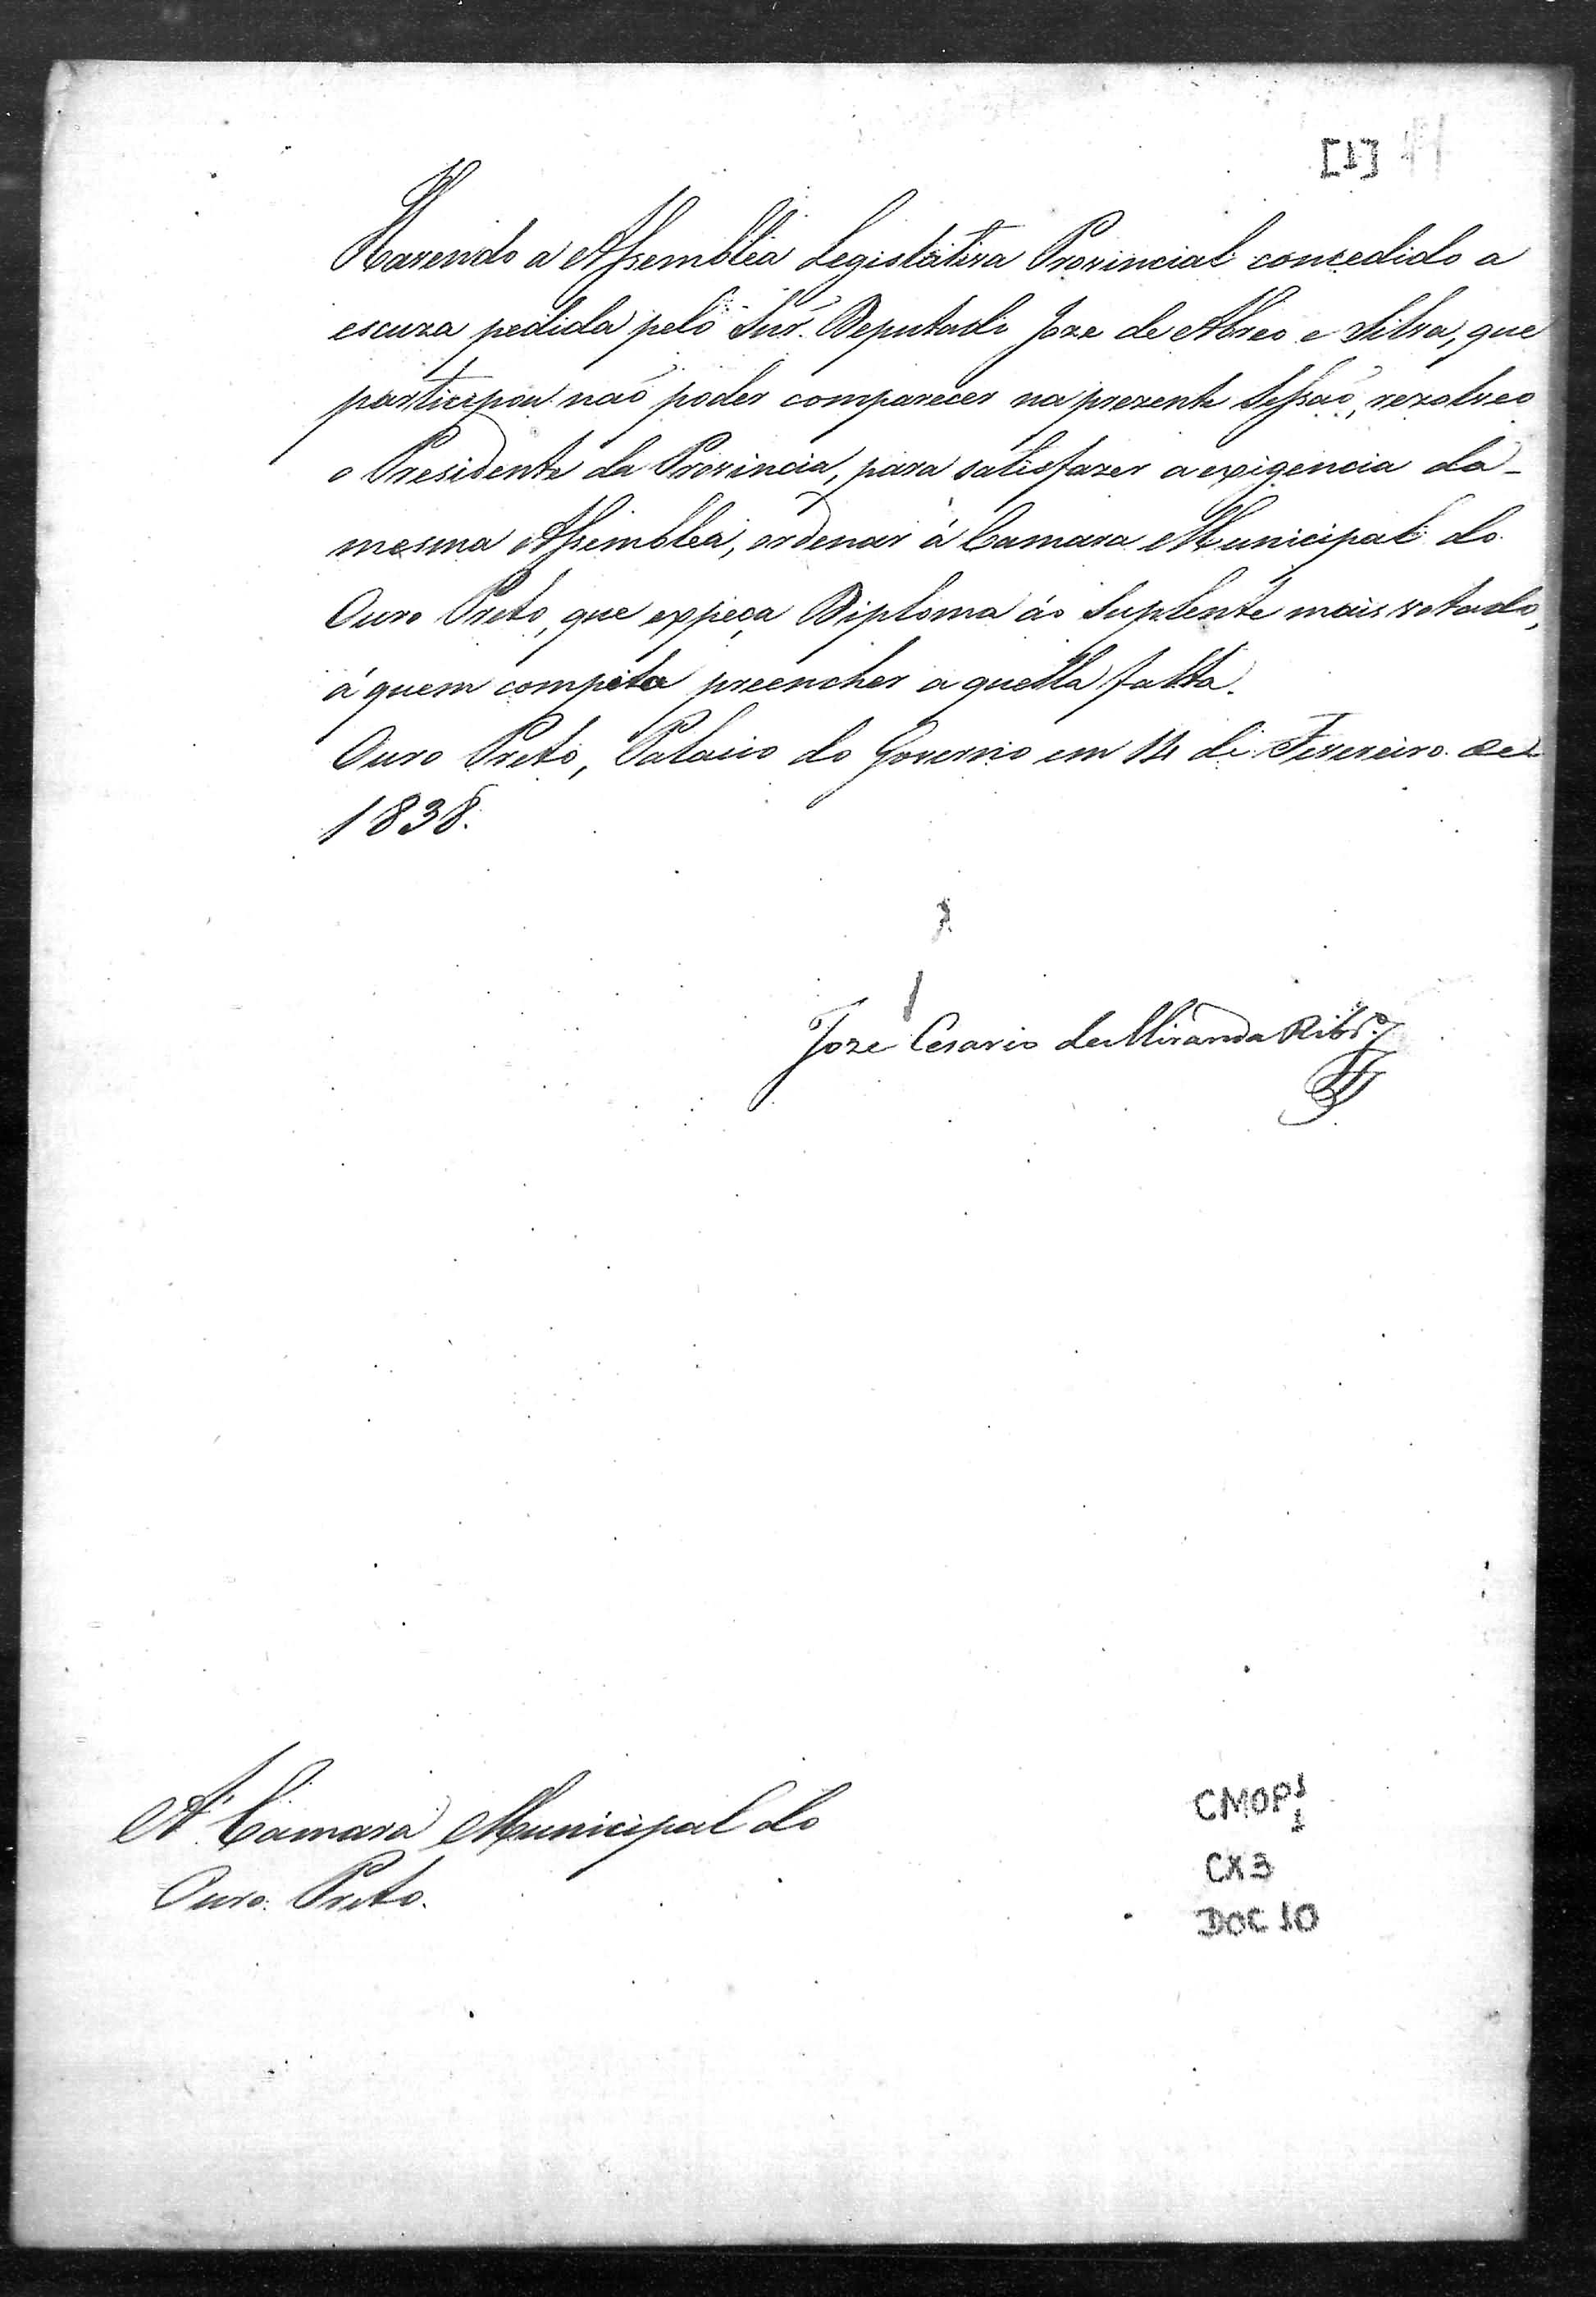 [1]
Havendo a Assemblea Legislativa Provincial concedido a
escuza pedida pelo Snr. Deputado Joze de Abreo e Silva, que
participou não poder comparecer na prezente Sessão, rezolveo
o Presidente da Provincia, para satisfazer a exigencia da
mesma Assemblea, ordenar á Camara Municipal do
Ouro Preto, que expeça Diploma áo Suplente mais votado,
á quem compete preencher aquella falta.
Ouro Preto, Palacio do Governo em 14 de Fevereiro de
1838.
Joze Cesario de Miranda Ribr.º
A' Camara Municipal do
Ouro Preto.
CMOP 1
1
CX 3
DOC 10